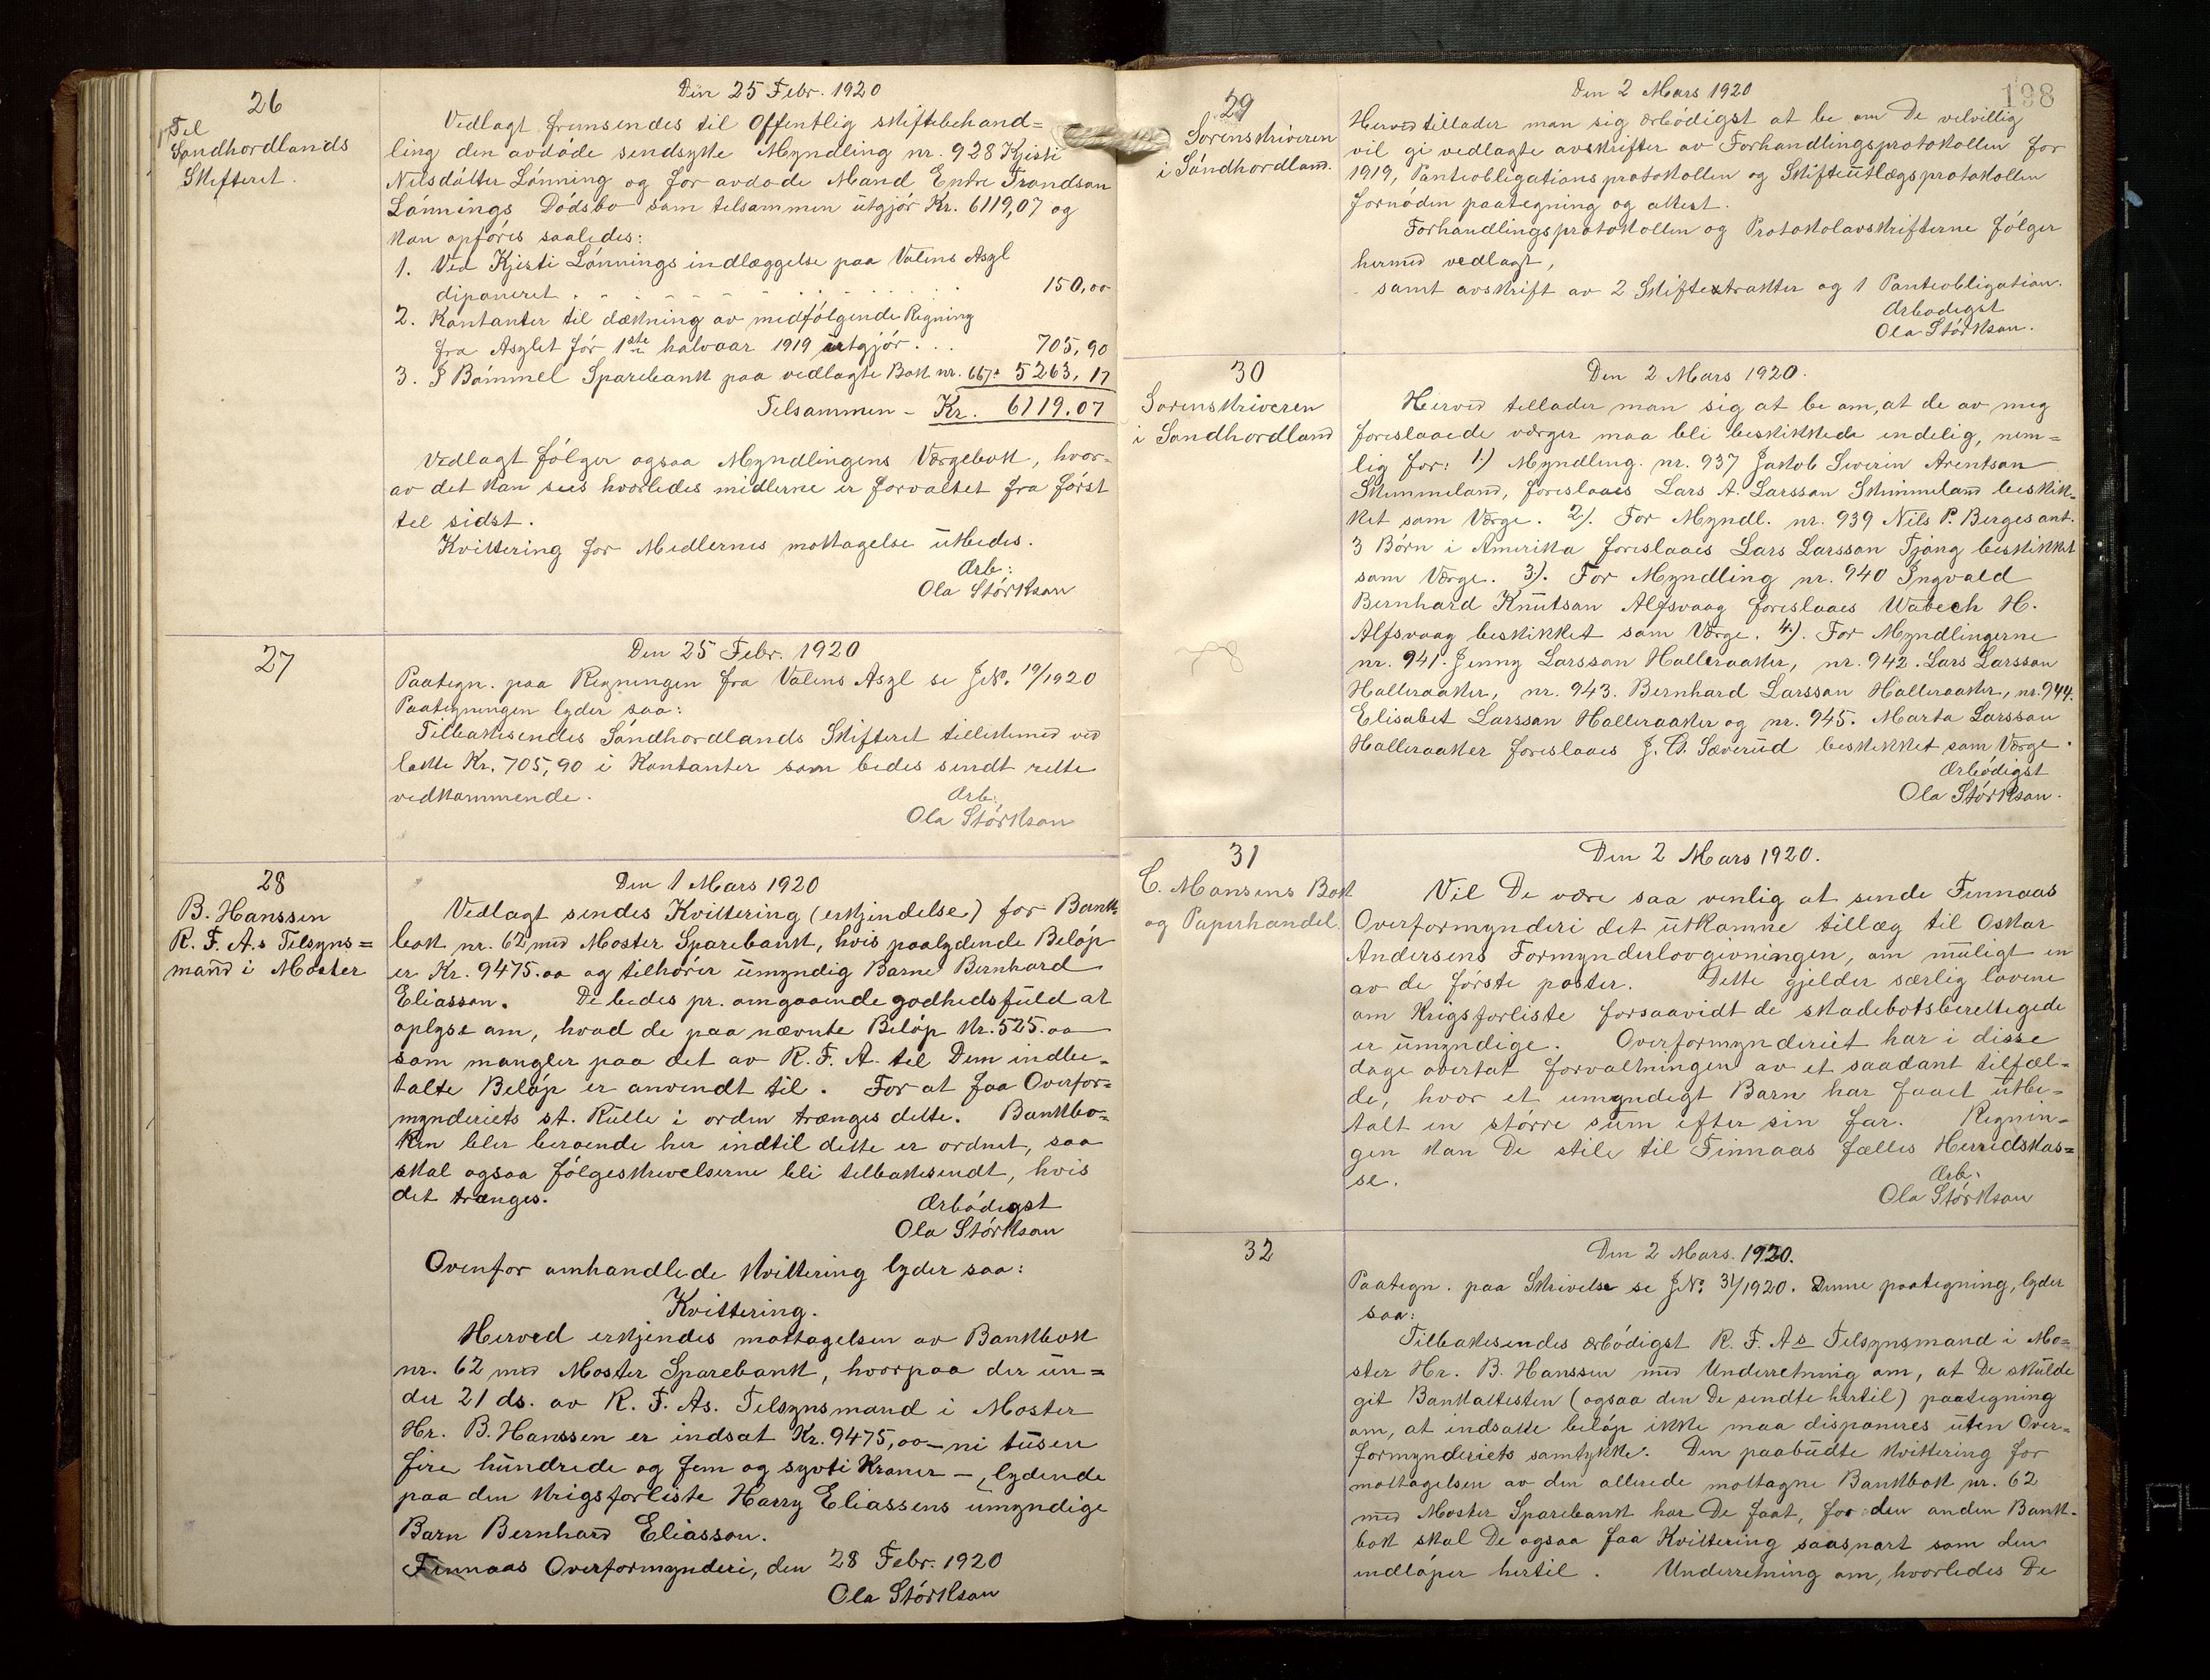 26
Til
Søndhordlands
Skifteret.
Den 25 Febr. 1920
Vedlagt fremsendes til Offentlig skiftebehand=
ling den avdøde sendsykke Myndling nr. 928 Kjisti
Nilsdatter Lønning og for avdøde Mand Endre Trondson
Lønnings Dødsbo som tilsammen utgjør Kr. 6119,07 og
kan opføres saaledes:
1. Ved Kjisti Lønnings indlæggelse paa Valens Asyl
diponeret . . . . . . . . . . . . 150,00
2. Kontanter til dækning av medfølgende Regning
fra Asylet før 1ste halvaar 1919 utgjør . . . 705,90
3. I Bømmel Sparebank paa vedlagte Bok nr. 667: 5263,17
Tilsammen - Kr. 6119.07
Vedlagt følger ogsaa Myndlingens Værgebok, hvor=
av det kan sees hvorledes midlerne er forvaltet fra først
til sidst.
Kvittering for Midlernes mottagelse utbedes.
Ærb:
Ola Størkson
27
Den 25 Febr. 1920
Paategn. paa Regningen fra Valens Asyl se JNo. 19/1920
Paategningen lyder saa:
Tilbakesendes Søndhordlands Skifteret tillikemed ved
lakte Kr. 705,90 i Kontanter som bedes sendt rette
vedkommende.
Ærb.
Ola Størkson
28
B. Hanssen
R. F. A.s Tilsyns=
mand i Moster
Den 1 Mars 1920
Vedlagt sendes Kvittering (erkjendelse) for Bank-
bok nr. 62 med Moster Sparebank, hvis paalydende Beløp
er Kr. 9475.00 og tilhører umyndig Barne Bernhard
Eliasson. De bedes pr. omgaaende godhedsfuld at
oplyse om, hvad de paa nævnte Beløp Kr. 525.00
som mangler paa det av R. F. A. til Dem indbe-
talte Beløp er anvendt til. For at faa Overfor=
mynderiets st. Rulle i orden trænges dette. Bankbo=
ken blir beroende her indtil dette er ordnet, saa
skal ogsaa følgeskrivelserne bli tilbakesendt, hvis
det trænges.
Ærbødigst
Ola Størkson
Ovenfor omhandlede kvittering lyder saa:
Kvittering.
Herved erkjendes mottagelsen av Bankbok
nr. 62 med Moster Sparebank, hvorpaa der un=
der 21 ds. av R. F. As. Tilsynsmand i Moster
Hr. B. Hanssen er indsat Kr. 9475,00 - ni tusen
fire hundrede og fem og sytti Kroner -, lydende
paa den krigsforliste Harry Eliassens umyndige
Barn Bernhard Eliasson.
Finnaas Overformynderi, den 28 Febr. 1920
Ola Størkson
198
29
Sorenskriveren
i Søndhordland.
Den 2 Mars 1920
Herved tillader man sig ærbødigst at be om De velvillig
vil gi vedlagte avskrifter av Forhandlingsprotokollen for
1919, Panteobligationsprotokollen og Skifteutlægsprotokollen
fornøden paategning og attest.
Forhandlingsprotokollen og Protokolavskrifterne følger
hermed vedlagt,
samt avskrift av 2 Skifteextrakter og 1 Panteobligation.
Ærbødigst
Ola Størkson.
30
Sorenskriveren
i Søndhordland
Den 2 Mars 1920.
Herved tillader man sig at be om, at de av meg
foreslaaede værger maa bli beskikkede endelig, nem=
lig for: 1.) Myndling. nr. 937 Jakob Severin Arentson
Skimmeland, foreslaaes Lars A. Larsson Skimmeland beskik-
ket som Værge. 2). For Myndl. nr. 939 Nils P. Berges ant.
3 Børn i Amerika foreslaaes Lars Larsson Tjong beskikket
som Værge. 3). For Myndling nr. 940 Ingvald
Bernhard Knutson Alfsvaag foreslaaes Wabech H.
Alfsvaag beskikket som Værge. 4.). For Myndlingerne
nr. 941. Jenny Larsson Halleraaker, nr. 942. Lars Larsson
Halleraaker, nr. 943. Bernhard Larsson Halleraaker, nr. 944.
Elisabet Larsson Halleraaker og nr. 945. Marta Larsson
Halleraaker foreslaaes J. Sæverud beskikket som Værge.
Ærbødigst
Ola Størkson.
31
C. Monsens Bok
og Papirhandel.
Den 2 Mars 1920.
Vil De være saa venlig at sende Finnaas
Overformynderi det utkomne tillæg til Oskar
Andersens Formynderlovgivningen, om muligt en
av de første poster. Dette gjelder særlig lovene
om Krigsforliste forsaavidt de skadebotsberettegede
er umyndige. Overformynderiet har i disse
dage overtat forvaltningen av et saadant tilfæl-
de, hvor et umyndigt Barn har faaet utbe-
talt en større sum efter sin far. Regnin-
gen kan De stile til Finnaas fælles Herredskas=
se.
Ærb.
Ola Størkson
32
Den 2 Mars. 1920.
Paategn. paa Skrivelse se JNo. 31/1920. Denne paategning, lyder
saa:
Tilbakesendes ærbødigst R. F. As Tilsynsmand i Mo=
ster Hr. B. Hanssen med Underretning om, at De skulde
git Bankattesten (ogsaa den De sendte hertil) paategning
om, at indsatte beløp ikke maa disponeres uten Over-
formynderiets samtykke. Den paabudte kvittering for
mottagelsen av den allerede mottagne Bankbok nr. 62
med Moster Sparebank har De faat, for den anden Bank-
bok skal De ogsaa faa Kvittering saasnart som den
indløper hertil. Underretning om, hvorledes De